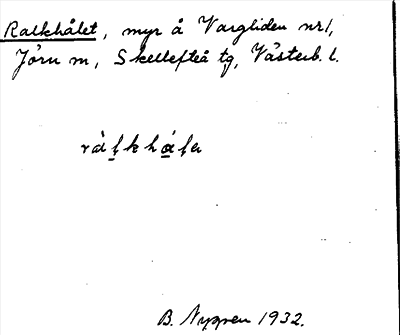 Ralkhålet, myr å Vargliden nr1,
Jörn m, Skellefteå tg, Västerb. l.
B. Nygren 1932.